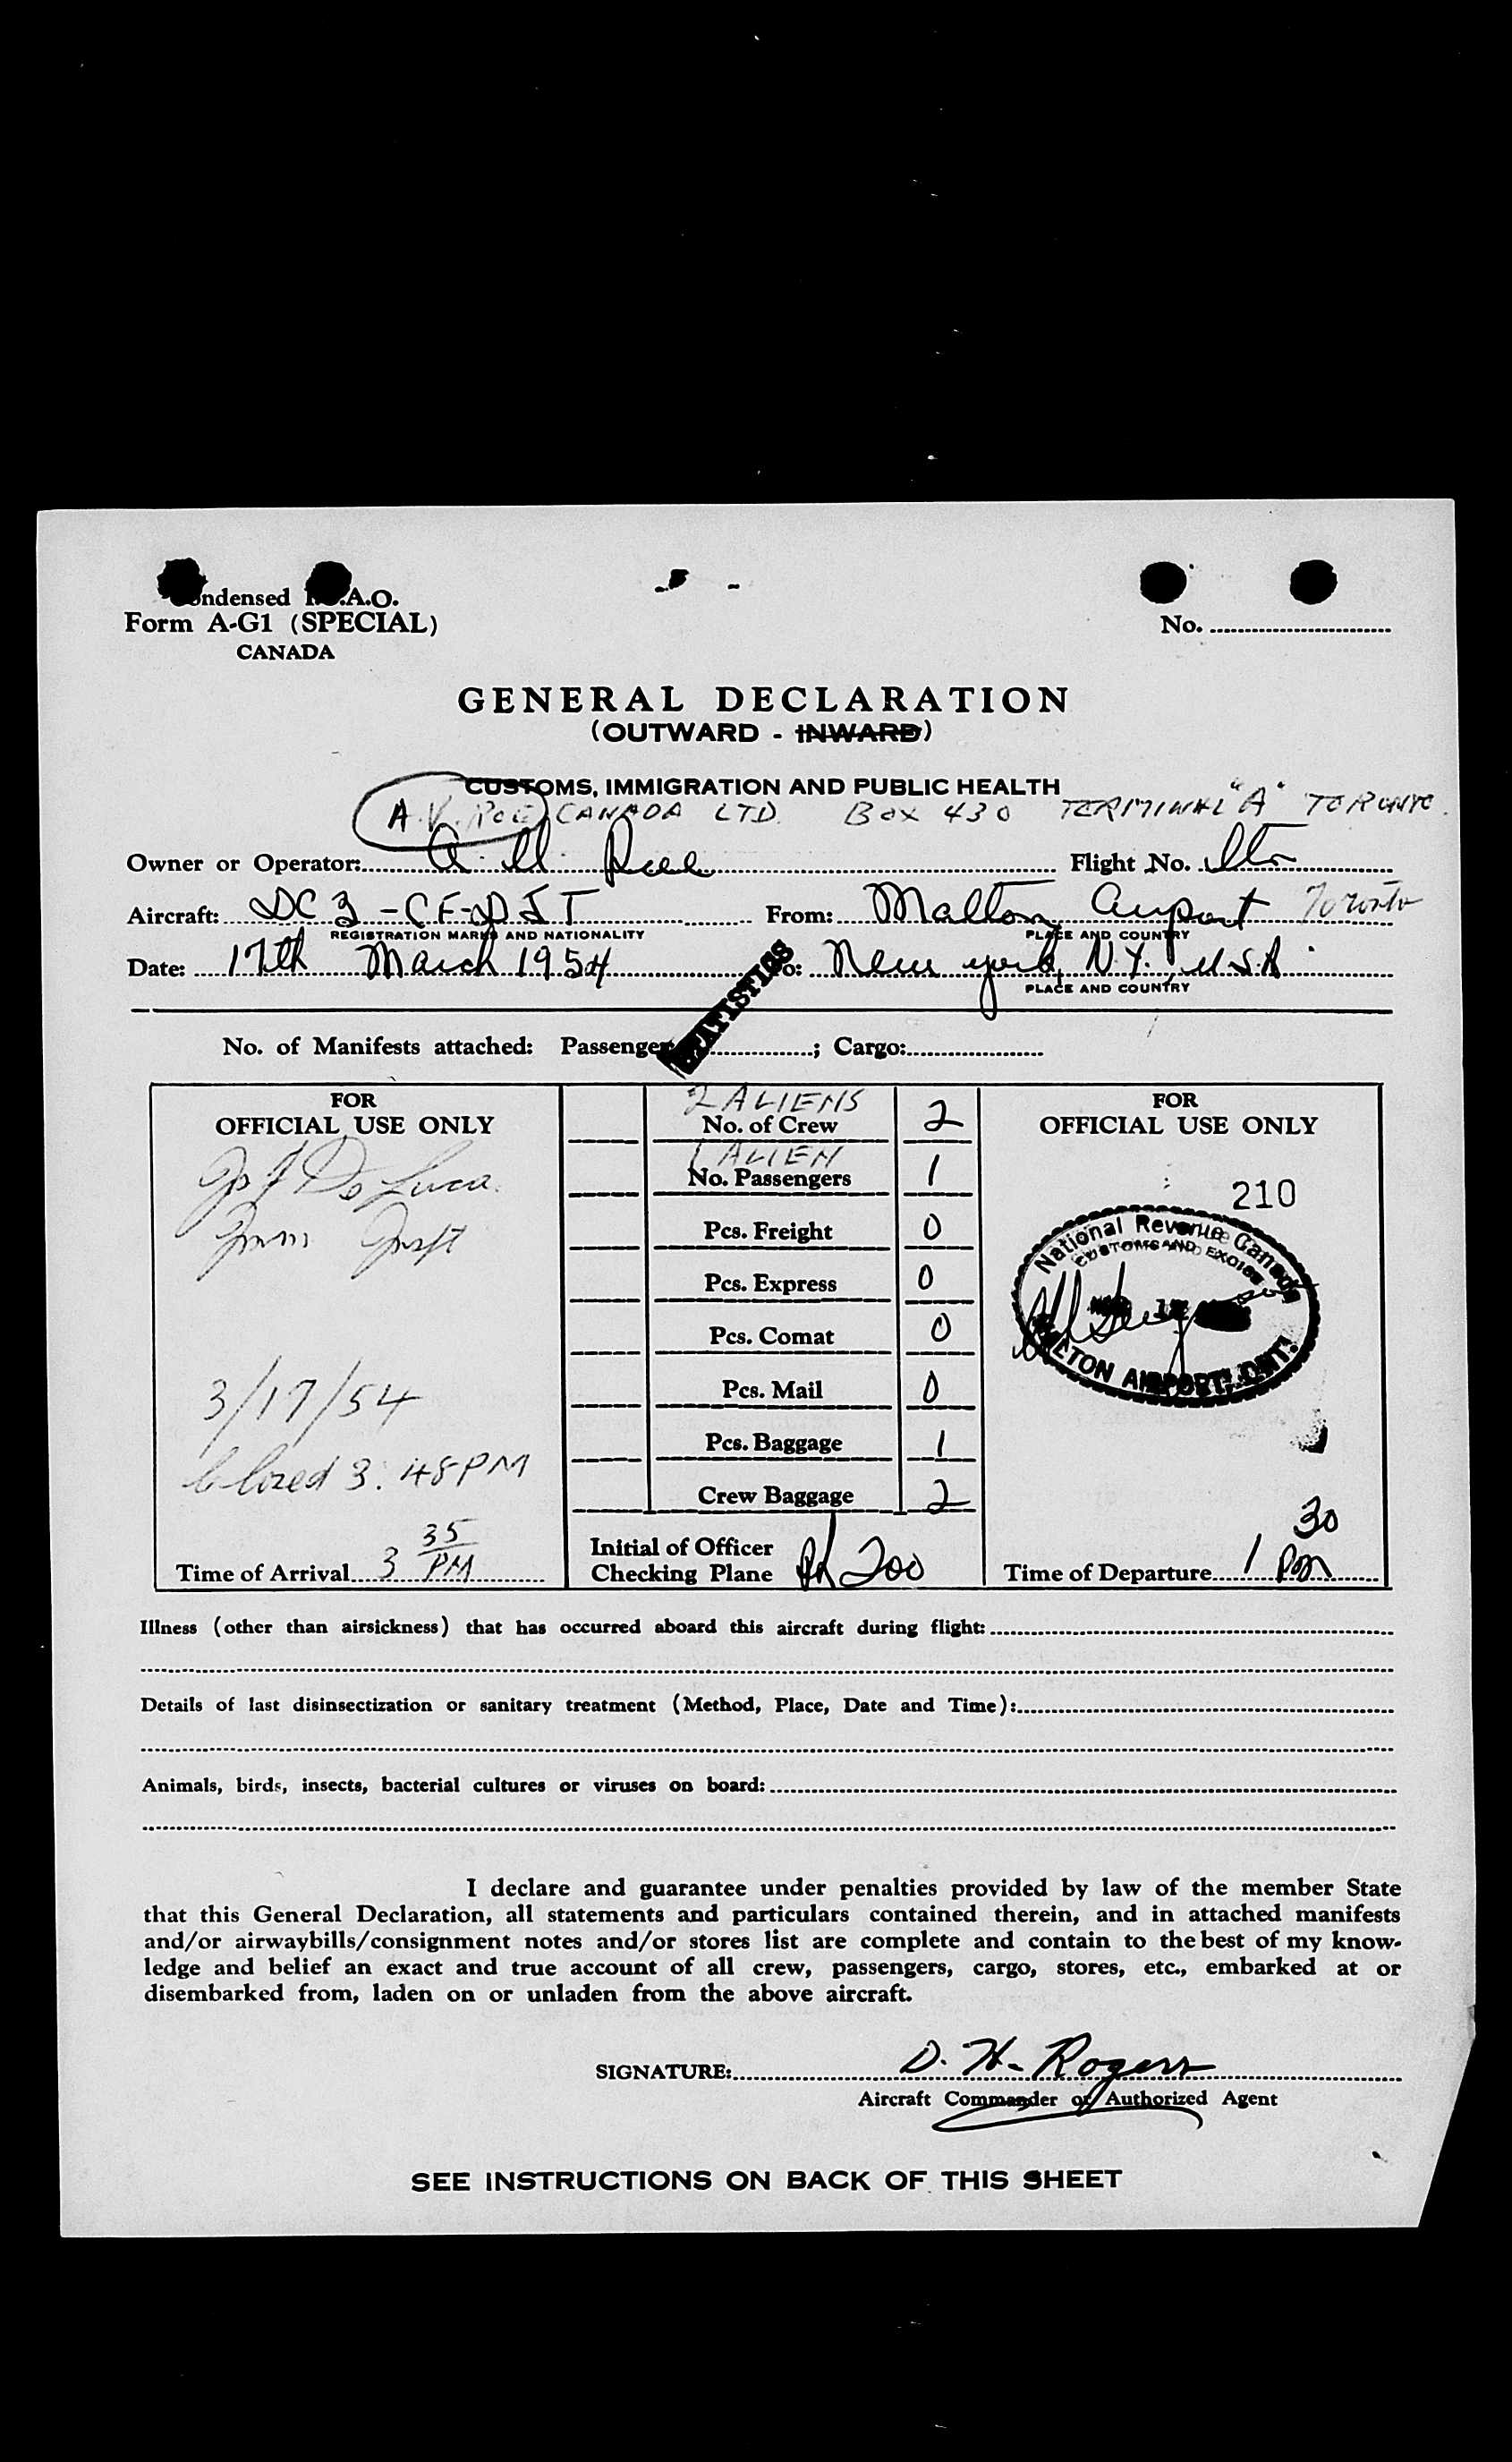 ndensed I. .A.O.
Form A-G1 (SPECIAL)
CANADA
No.
GENERAL DECLARATION
(OUTWARD - INWARD)
CUSTOMS, IMMIGRATION AND PUBLIC HEALTH
A.V. ROE CANADA LTD. BOX 430 TERMINAL "A" TORONTO.
Owner or Operator: A. V. Roe Flight No.
Aircraft: DC 3 - CF-DJT From: Malton Airport Toronto
REGISTRATION MARKS AND NATIONALITY PLACE AND COUNTRY
Date: 17th March 1954 To: New York, N.Y. U.S.A.
PLACE AND COUNTRY
STATISTICS
No. of Manifests attached: Passenger ; Cargo:
FOR
OFFICIAL USE ONLY
De Luca.
Insp
3/17/54
Closed 3:48 PM
Time of Arrival 3 35 PM
2 ALIENS
No. of Crew 2
1 ALIEN
No. Passengers 1
Pcs. Freight 0
Pcs. Express 0
Pcs. Comat 0
Pcs. Mail 0
Pcs. Baggage 1
Crew Baggage 2
Initial of Officer
Checking Plane 200
FOR
OFFICIAL USE ONLY
210
National Revenue Canada
CUSTOMS AND EXCISE
MALTON AIRPORT, ONT.
Time of Departure 1 30 PM
Illness (other than airsickness) that has occurred aboard this aircraft during flight:
Details of last disinsectization or sanitary treatment (Method, Place, Date and Time):
Animals, birds, insects, bacterial cultures or viruses on board:
I declare and guarantee under penalties provided by law of the member State
that this General Declaration, all statements and particulars contained therein, and in attached manifests
and/or airwaybills/consignment notes and/or stores list are complete and contain to the best of my know-
ledge and belief an exact and true account of all crew, passengers, cargo, stores, etc., embarked at or
disembarked from, laden on or unladen from the above aircraft.
SIGNATURE: D. H. Rogers
Aircraft Commander or Authorized Agent
SEE INSTRUCTIONS ON BACK OF THIS SHEET